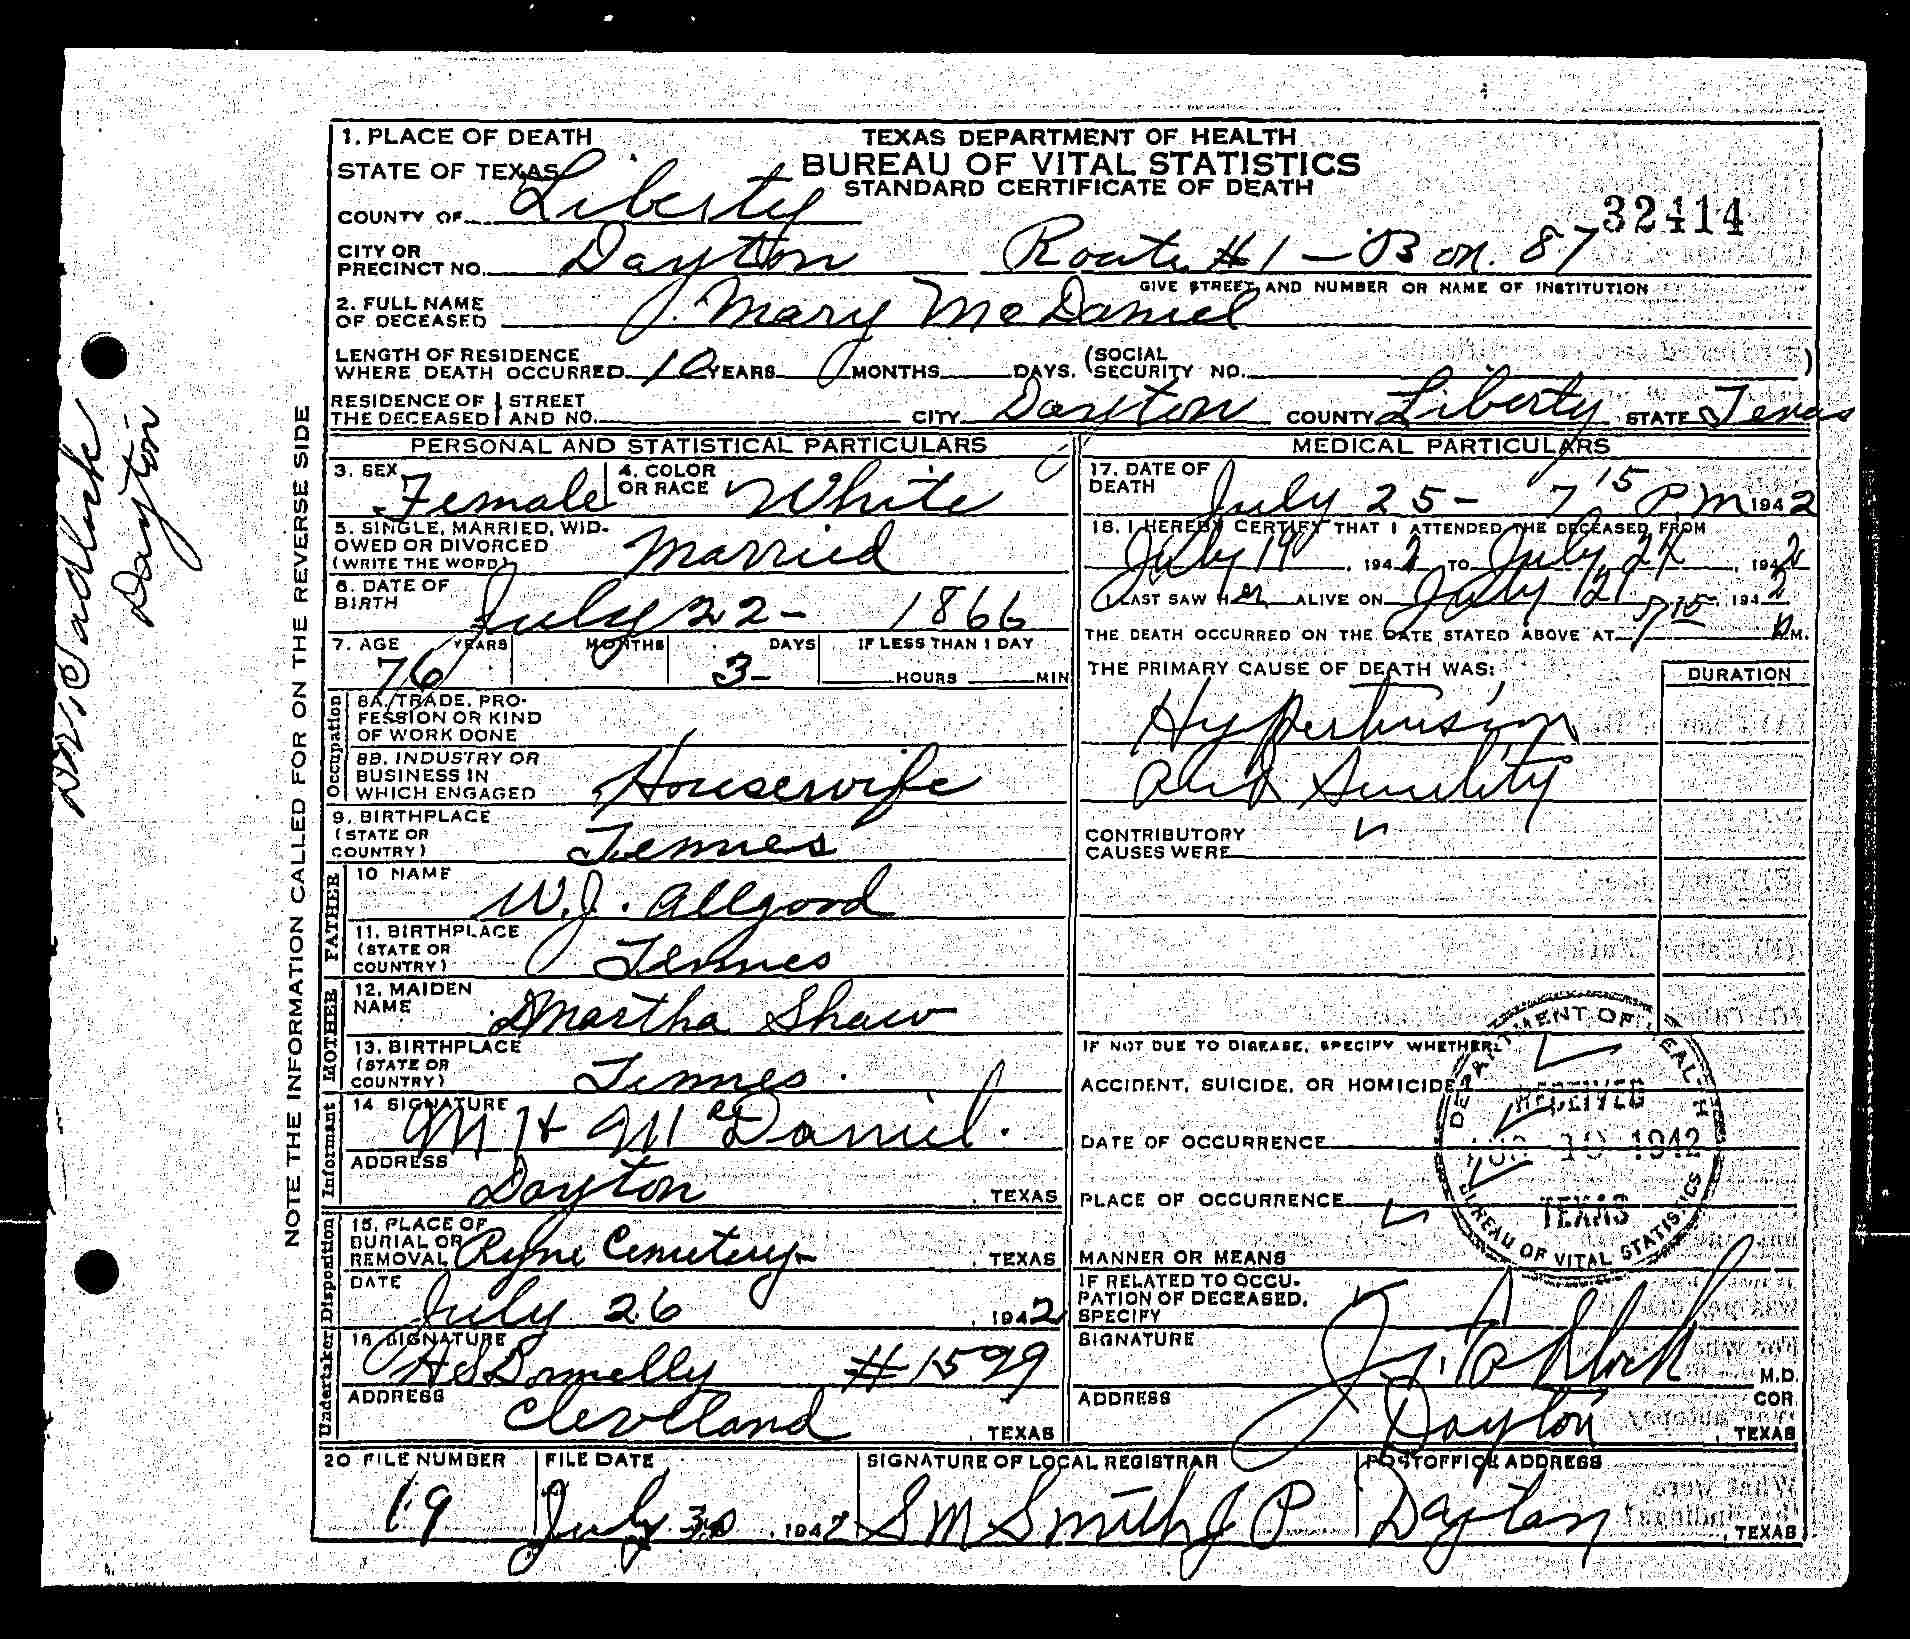 1. PLACE OF DEATH
TEXAS DEPARTMENT OF HEALTH
BUREAU OF VITAL STATISTICS
STANDARD CERTIFICATE OF DEATH
STATE OF TEXAS
COUNTY OF Liberty
32414
CITY OR PRECINCT NO. Dayton Route #1 - Box. 87
GIVE STREET AND NUMBER OR NAME OF INSTITUTION
2. FULL NAME OF DECEASED Mary McDaniel
LENGTH OF RESIDENCE WHERE DEATH OCCURRED 10 YEARS MONTHS DAYS. (SOCIAL SECURITY NO. )
RESIDENCE OF THE DECEASED STREET AND NO. CITY Dayton COUNTY Liberty STATE Texas
PERSONAL AND STATISTICAL PARTICULARS
3. SEX Female 4. COLOR OR RACE White
5. SINGLE, MARRIED, WIDOWED OR DIVORCED (WRITE THE WORD) Married
6. DATE OF BIRTH July 22 - 1866
7. AGE YEARS MONTHS DAYS IF LESS THAN 1 DAY
76 3- HOURS MIN
Occupation
8A. TRADE, PROFESSION OR KIND OF WORK DONE
8B. INDUSTRY OR BUSINESS IN WHICH ENGAGED Housewife
9. BIRTHPLACE (STATE OR COUNTRY) Tennes
FATHER
10 NAME W.J. Allgood
11. BIRTHPLACE (STATE OR COUNTRY) Tennes
MOTHER
12. MAIDEN NAME Martha Shaw
13. BIRTHPLACE (STATE OR COUNTRY) Tennes.
Informant
14 SIGNATURE McDaniel.
ADDRESS Dayton, TEXAS
Disposition
15. PLACE OF BURIAL OR REMOVAL Ryne Cemetery, TEXAS
DATE July 26, 1942
Undertaker
16 SIGNATURE Donnelly #1599
ADDRESS Clevelland, TEXAS
MEDICAL PARTICULARS
17. DATE OF DEATH July 25 - 7 15 PM 1942
18. I HEREBY CERTIFY THAT I ATTENDED THE DECEASED FROM
July 19, 1942 TO July 24, 1942
I LAST SAW HER ALIVE ON July, 1942
THE DEATH OCCURRED ON THE DATE STATED ABOVE AT 7 15 P M.
THE PRIMARY CAUSE OF DEATH WAS: DURATION
Hypertension
and Senility
CONTRIBUTORY CAUSES WERE
IF NOT DUE TO DISEASE, SPECIFY WHETHER:
ACCIDENT, SUICIDE, OR HOMICIDE?
DATE OF OCCURRENCE
PLACE OF OCCURRENCE
MANNER OR MEANS
IF RELATED TO OCCUPATION OF DECEASED, SPECIFY
DEPARTMENT OF HEALTH
RECEIVED
AUG 10 1942
TEXAS
BUREAU OF VITAL STATISTICS
SIGNATURE M.D.
ADDRESS Dayton COR. TEXAS
20 FILE NUMBER 19
FILE DATE July 30, 1942
SIGNATURE OF LOCAL REGISTRAR S M Smith J P
POSTOFFICE ADDRESS Dayton, TEXAS
NOTE THE INFORMATION CALLED FOR ON THE REVERSE SIDE
Dayton